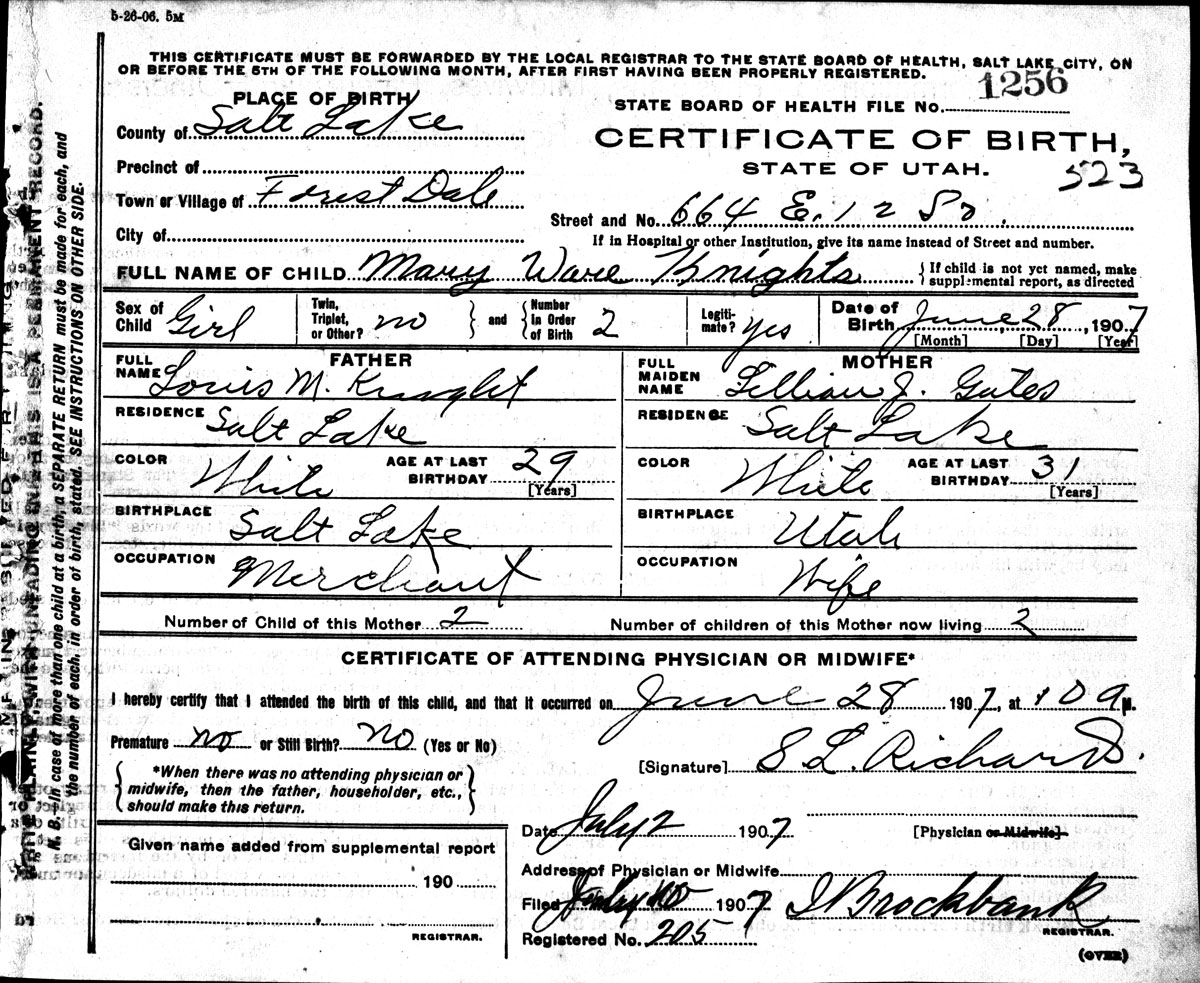 5-26-06. 5M
THIS CERTIFICATE MUST BE FORWARDED BY THE LOCAL REGISTRAR TO THE STATE BOARD OF HEALTH, SALT LAKE CITY, ON
OR BEFORE THE 5TH OF THE FOLLOWING MONTH, AFTER FIRST HAVING BEEN PROPERLY REGISTERED.
PLACE OF BIRTH
STATE BOARD OF HEALTH FILE No. 1256
County of Salt Lake
CERTIFICATE OF BIRTH,
STATE OF UTAH.
523
Precinct of
Town or Village of Forest Dale
Street and No. 664 E. 12 So.
City of
If in Hospital or other Institution, give its name instead of Street and number.
FULL NAME OF CHILD Mary Ware Knights
If child is not yet named, make
supplemental report, as directed
Sex of Child Girl
Twin, Triplet, or Other? no
and
Number In Order of Birth 2
Legiti-mate? yes
Date of Birth June 28, 1907
[Month] [Day] [Year]
FATHER
FULL NAME Louis M. Knight
MOTHER
FULL MAIDEN NAME Lillian J. Gates
RESIDENCE Salt Lake
RESIDENCE Salt Lake
COLOR White AGE AT LAST BIRTHDAY 29 [Years]
COLOR White AGE AT LAST BIRTHDAY 31 [Years]
BIRTHPLACE Salt Lake
BIRTHPLACE Utah
OCCUPATION Merchant
OCCUPATION Wife
Number of Child of this Mother 2 Number of children of this Mother now living 2
CERTIFICATE OF ATTENDING PHYSICIAN OR MIDWIFE*
I hereby certify that I attended the birth of this child, and that it occurred on June 28 1907, at M.
Premature no or Still Birth? no (Yes or No)
[Signature] S L. Richards.
*When there was no attending physician or
midwife, then the father, householder, etc.,
should make this return.
Date July 2 1907 [Physician or Midwife]
Given name added from supplemental report
190
REGISTRAR.
Address of Physician or Midwife
Filed July 1907 Brockbank
REGISTRAR.
Registered No. 205
(OVER)
WRITE PLAINLY WITH UNFADING INK—THIS IS A PERMANENT RECORD.
N. B.—In case of more than one child at a birth, a SEPARATE RETURN must be made for each, and
the number of each, in order of birth, stated. SEE INSTRUCTIONS ON OTHER SIDE.